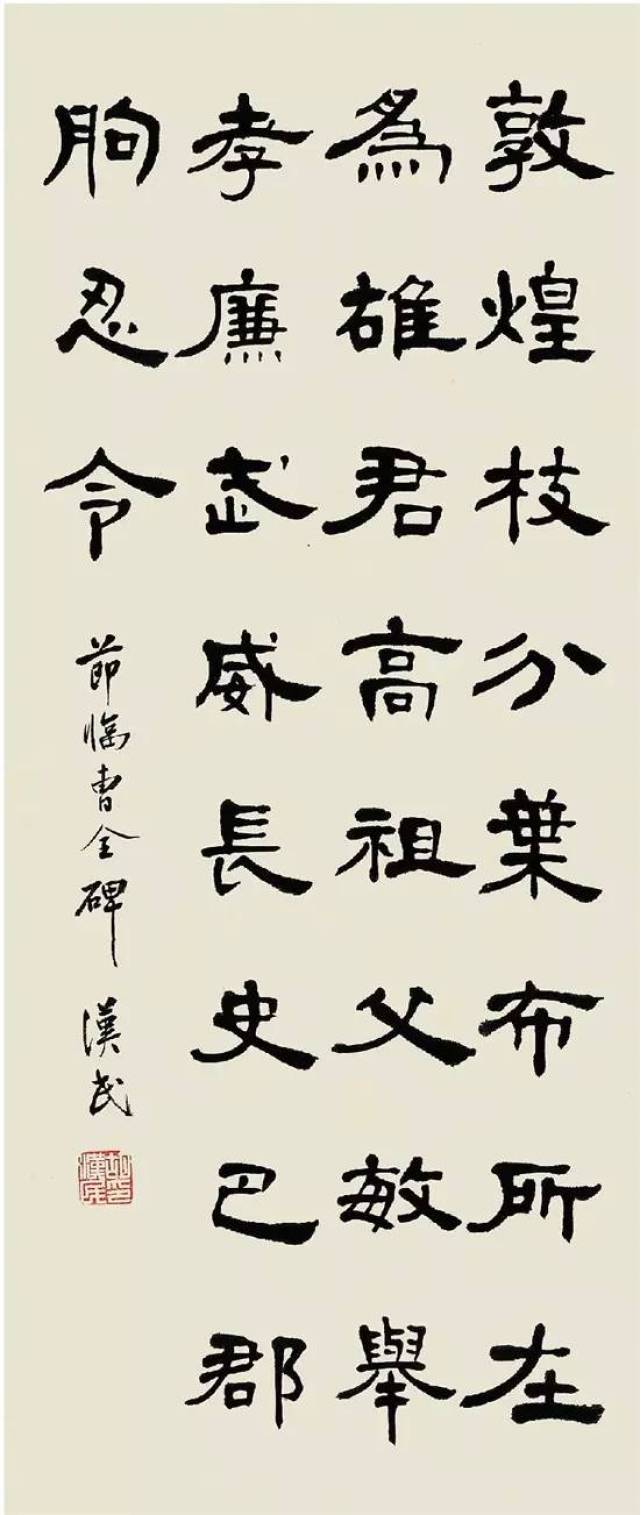 敦煌枝分葉布所在
為雄君高祖父敏舉
孝廉武威長史巴郡
朐忍令
節臨曹全碑 漢民
胡漢民印